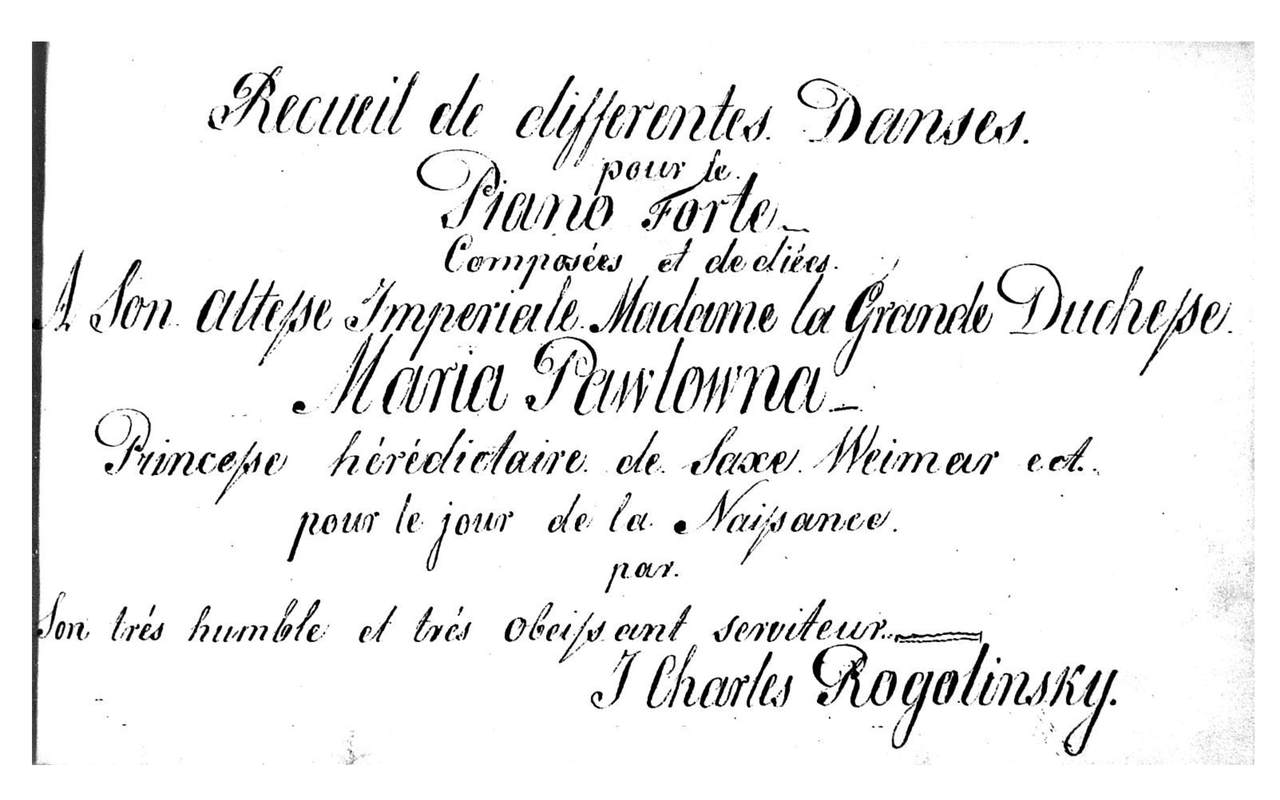 Recueil de differentes Danses.
pour le.
Piano Forte
Composées et dediées.
A Son Altesse Imperiale Madame la Grande Duchesse.
Maria Pawlowna
Princesse hérédictaire de Saxe Weimar ect.
pour le jour de la Naissance.
par.
Son trés humble et trés obeissant serviteur.
J Charles Rogolinsky.